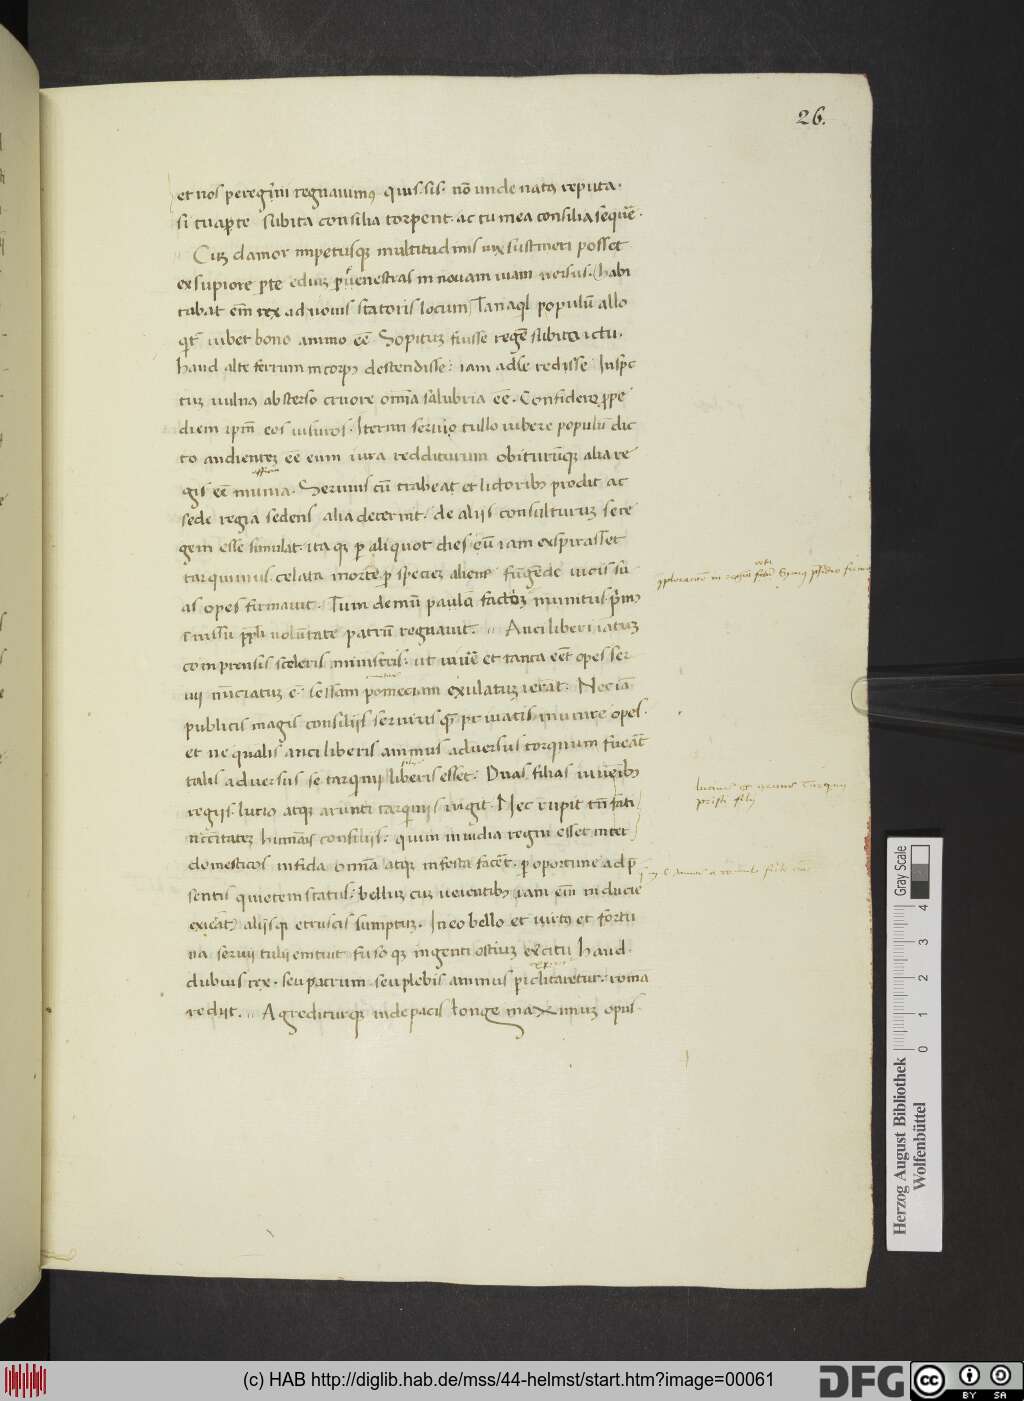 26.
et nos peregrini regnauimus qui sis. nõ unde natus reputa.
si tua p̱te subita consilia torpent. ac tu mea consilia sequẽ.
Cuz clamor impetusq; multitudinis uix sustineri posset
ex supiore p̱te ediuz p̱ fenestras in nouam uiam uersus. (habi
tabat em̃ rex ad iouis statoris locum) Tanaql populũ allo
qit̃ iubet bono animo eẽ. Sopituz fuisse regẽ subito ictu.
haud alte ferrum in corpꝰ descendisse: iam ad se redisse. Inspec
tuz uulnꝰ absterso cruore omĩa salubria eẽ. Confidere p̱pe
diem ip̃m eos uisuros. Iterim seruio tullo iubere populũ dic
to audientez eẽ eum iura redditurum obiturũq; alia re
gis eẽ munia. Seruius cũ trabea et lictoribꝰ prodit ac
sede regia sedens alia decernit. de aliis consulturuz se re
gem esse simulat. itaq; p̱ aliquot dies cũ iam expirasset
tarquinius. celata morte p̱ speciez aliene fungẽde uicis su
as opes firmauit. Tum demũ paula factoz munitus p̱imꝰ
iniussu p̱pli uolũtate patrũ regnauit. Anci liberi iatuz
comprensis sceleris ministris. ut uiuẽ et tanta eẽt opes ser
uii nũciatuz ẽ. sessam pometiam exulatuz ierat. Nec iã
publicis magis consiliis seruius q̃ priuatis munire opes.
et ne qualis anci liberis animus aduersus torqnium fueãt
talis aduersus se tarqnij liberis esset. Duas filias iuuẽibꝰ
regiis. lucio atq; arunti tarqnijs iũgit. Nec rupit tñ fati
necẽitatez humãis consiliis. quin inuidia regni esset inter
domesticos infida omĩa atq; infesta facẽt. p̱ oportune ad p̱
sentis quietem status. belluz cuz ueientibꝰ (iam em̃ inducie
exieãt) aliisq; etruscis sumptuz. In eo bello et uirtꝰ et fortu
na seruii tulii enituit fusoq; ingenti ostiuz exẽcitu haud
dubius rex. seu patrum seu plebis animus p̱iclitaretur. roma
rediit. Agrediturq; inde pacis longe maximuz opus.
lucius et aruns tarqnij
prisci filij
Herzog August Bibliothek
Wolfenbüttel
Gray Scale
0 1 2 3 4
(c) HAB http://diglib.hab.de/mss/44-helmst/start.htm?image=00061
DFG
cc BY SA